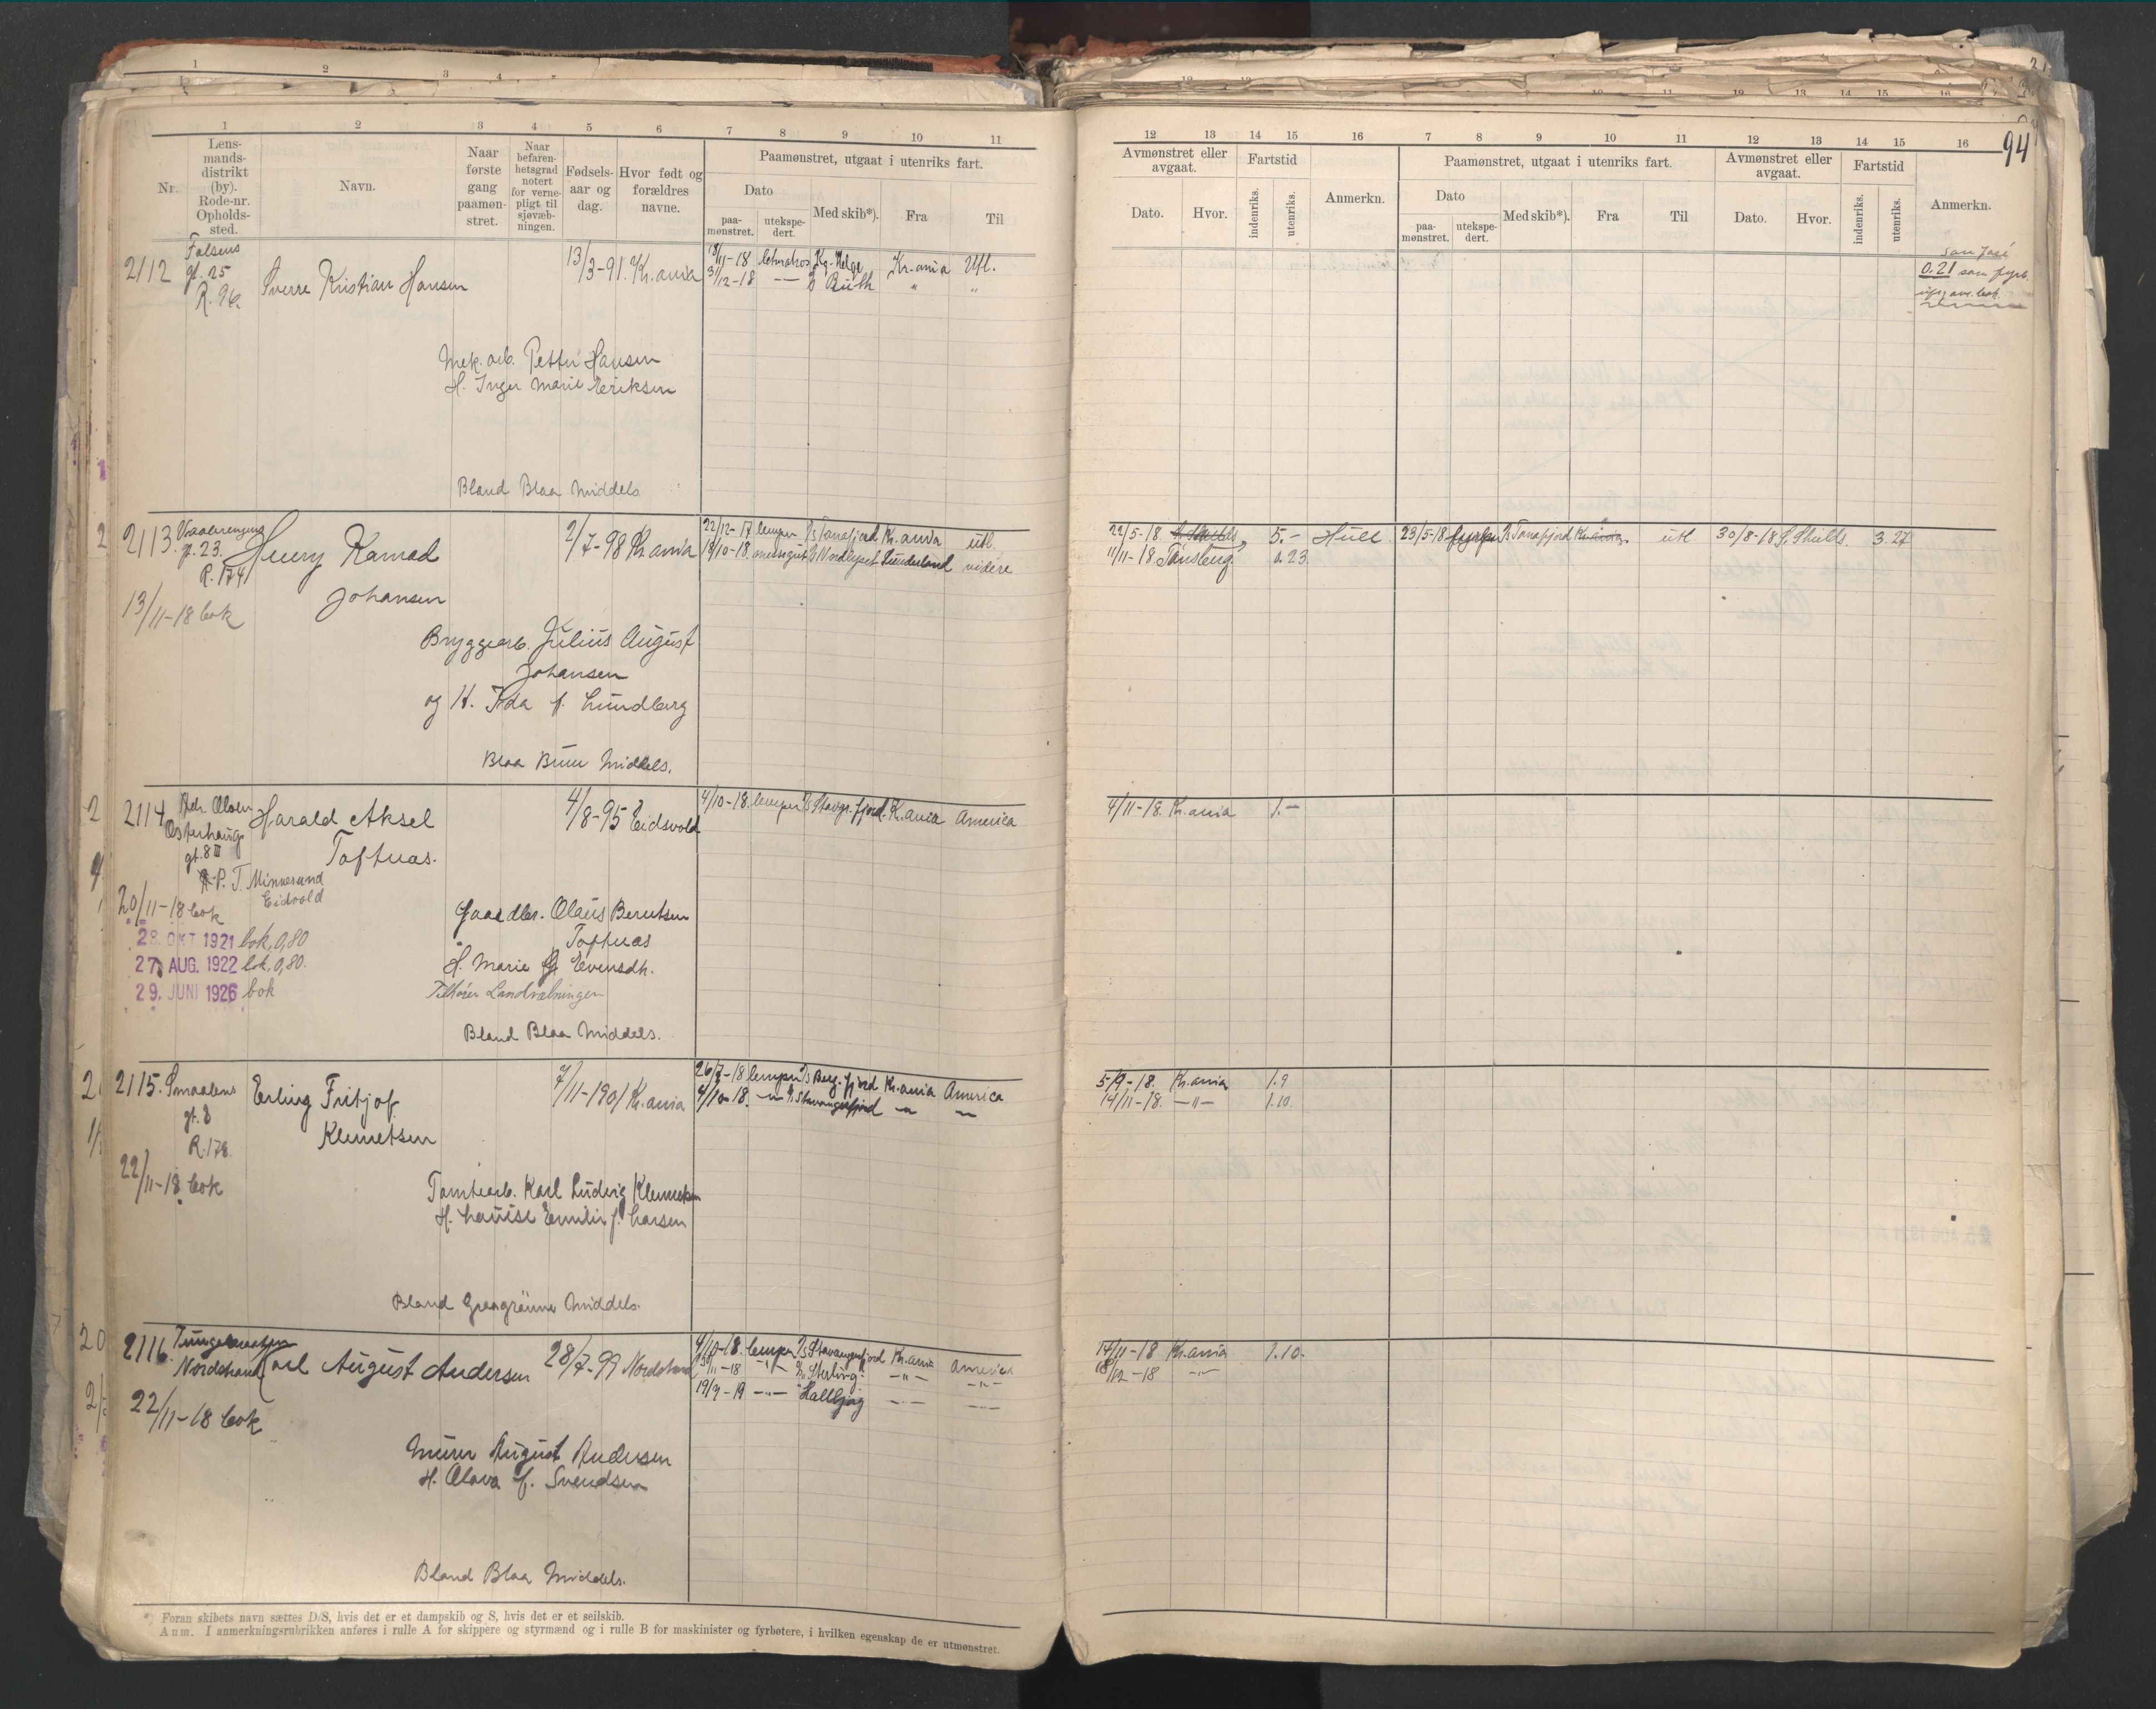 94
1 2 3 4 5 6 7 8 9 10 11
Nr.
Lens-
mands-
distrikt
(by).
Rode-nr.
Opholds-
sted.
Navn.
Naar
første
gang
paamøn-
stret.
Naar
befaren-
hetsgrad
notert
for verne-
pligt til
sjøvæb-
ningen.
Fødsels-
aar og
dag.
Hvor født og
forældres
navne.
Paamønstret, utgaat i utenriks fart.
Dato
paa-
mønstret.
utekspe-
dert.
Med skib*).
Fra
Til
12 13 14 15 16 7 8 9 10 11 12 13 14 15 16
Avmønstret eller
avgaat.
Dato.
Hvor.
Fartstid
indenriks.
utenriks.
Anmerkn.
Paamønstret, utgaat i utenriks fart.
Dato
paa-
mønstret.
utekspe-
dert.
Med skib*).
Fra
Til
Avmønstret eller
avgaat.
Dato.
Hvor.
Fartstid
indenriks.
utenriks.
Anmerkn.
2112
Falsens
gt. 25
R. 96.
Sverre Kristian Hansen
13/3-91. Kr.ania
18/11-18 Kg. Helge Kr.ania Utl.
31/12-18 — Ruth " "
San José
0.21 som fyrb.
Mek. arb. Petter Hansen
H. Inger Marie Eriksen
Bland Blaa Middels
2113.
Vaalerengens
gt. 23.
R. 174
Henry Konrad
Johansen
2/7-98 Kr.ania
22/12-17 lemper D/S Tanafjord Kr.ania utl.
18/10-18. Nordlyset Sunderland videre
22/5-18. 5.- Hull 23/5-18. fyrb. D/S Tanafjord Kr.ania utl 30/8-18 S. Shields. 3.27
11/11-18 Tønsberg. 0.23.
13/11-18 bok
Bryggearb. Julius August
Johansen
og H. Ida f. Lundberg
Blaa Brun Middels.
2114
Adr Olsen
Østerhaugs
gt. 8 III
P. T. Minnesund
Eidsvold
Harald Aksel
Toftnæs.
4/8-95 Eidsvold
4/10-18. lemper D/S Stavgr.fjord. Kr.ania America
4/11-18. Kr.ania 1.-
20/11-18 bok
28. OKT 1921 bok, 0,80
27. AUG. 1922 bok, 0,80.
29. JUNI 1926 bok
Gaardbr. Olaus Berntsen
Toftnæs
H. Marie Evensdt.
Tilhører Landvæbningen
Bland Blaa Middels.
2115.
Smaalens
gt. 8
R. 178.
Erling Fritjof
Klemetsen
7/11-1901 Kr.ania
26/7-18 lemper D/S Berg.fjord Kr.ania America
4/10-18. —"— D/S Stavangerfjord —"— —"—
5/9-18. Kr.ania 1.9
14/11-18. —"— 1.10.
22/11-18 bok
Tomtearb. Karl Ludvig Klemetsen
H. Louise Emilie f. Larsen
Bland Graagrønne Middels.
2116.
Nordstrand
Karl August Andersen
28/7-99 Nordstrand
4/10-18. lemper D/S Stavangerfjord Kr.ania America
30/11-18 —"— D/S Sterling —"— —"—
19/3-19 —"— Hallbjørg —"— —"—
14/11-18 Kr.ania 1.10.
18/12-18 —"—
22/11-18 bok
Murer August Andersen
H. Olava f. Svendsen
Bland Blaa Middels.
*) Foran skibets navn sættes D/S, hvis det er et dampskib og S, hvis det er et seilskib.
Anm. I anmerkningsrubrikken anføres i rulle A for skippere og styrmænd og i rulle B for maskinister og fyrbøtere, i hvilken egenskap de er utmønstret.